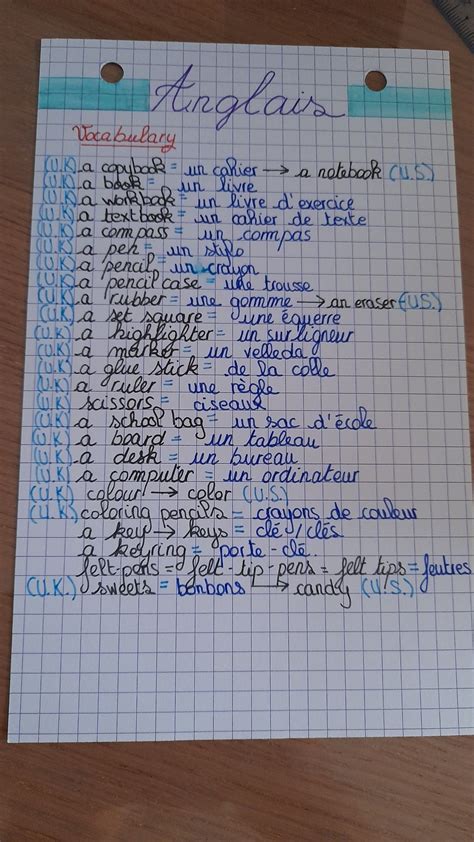 Anglais
Vocabulary
(U.K) a copybook = un cahier → a notebook (U.S.)
(U.K) a book = un livre
(U.K) a workbook = un livre d'exercice
(U.K) a textbook = un cahier de texte
(U.K) a compass = un compas
(U.K) a pen = un stylo
(U.K) a pencil = un crayon
(U.K) a pencil case = une trousse
(U.K) a rubber = une gomme → an eraser (U.S.)
(U.K) a set square = une équerre
(U.K) a highlighter = un surligneur
(U.K) a marker = un velleda
(U.K) a glue stick = de la colle
(U.K) a ruler = une règle
(U.K) scissors = ciseaux
(U.K) a school bag = un sac d'école
(U.K) a board = un tableau
(U.K) a desk = un bureau
(U.K) a computer = un ordinateur
(U.K) colour → color (U.S.)
(U.K) coloring pencils = crayons de couleur
a key → keys = clé / clés
a keyring = porte-clé.
felt-pens = felt-tip-pens = felt tips = feutres
(U.K.) sweets = bonbons → candy (U.S.)